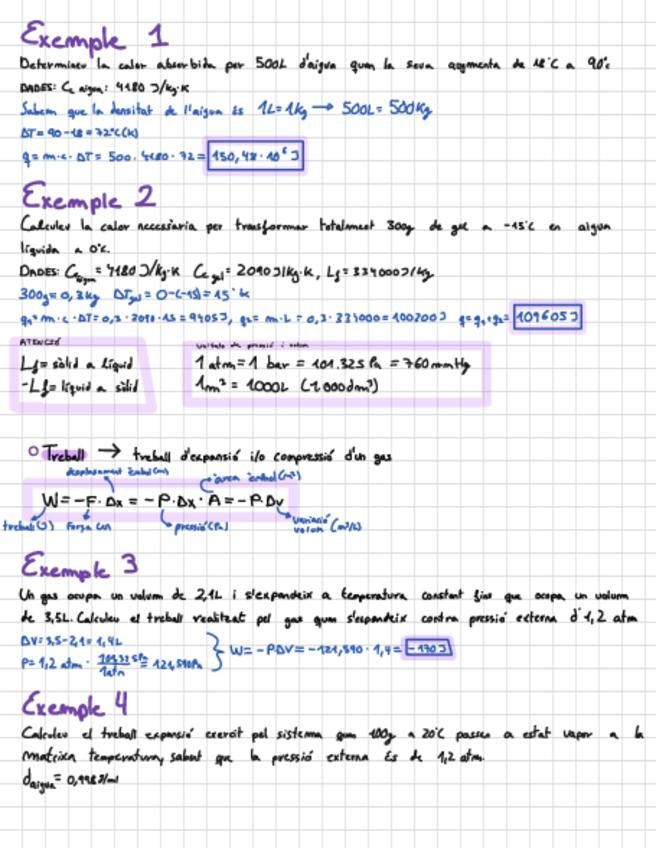 Exemple 1
Determineu la calor absorbida per 500L d'aigua quan la seva augmenta de 18°C a 90°c
DADES: Ce aigua: 4180 J/kg·K
Sabem que la densitat de l'aigua és 1L=1Kg → 500L=500Kg
ΔT=90-18=72°C(K)
q=m·c·ΔT=500·4180·72=150,48·10⁶J
Exemple 2
Calculeu la calor necessària per transformar totalment 300g de gel a -15°C en aigua
líquida a 0°C.
DADES: Ce aigua=4180J/kg·K Ce gel=2090J/kg·K, Lf=334000J/kg
300g=0,3kg ΔTgel=0-(-15)=15°K
q₁=m·c·ΔT=0,3·2090·15=9405J, q₂=m·L=0,3·334000=100200J q=q₁+q₂=109605J
ATENCIÓ
Lf=sòlid a líquid
-Lf=líquid a sòlid
Unitats de pressió i volum
1atm=1 bar=101.325Pa=760mmHg
1m³=1000L (1000dm³)
Treball → treball d'expansió i/o compressió d'un gas
desplaçament èmbol(m)
àrea èmbol(m²)
W=-F·Δx=-P·Δx·A=-P·Δv
treball(J)
Força (N)
pressió(Pa)
variació volum (m³/L)
Exemple 3
Un gas ocupa un volum de 2,1L i s'expandeix a temperatura constant fins que ocupa un volum
de 3,5L. Calculeu el treball realitzat pel gas quan s'expandeix contra pressió externa d'1,2 atm
ΔV=3,5-2,1=1,4L
P=1,2 atm · 101325Pa/1atm=121,590Pa
W=-PΔV=-121,590·1,4=-170J
Exemple 4
Calculeu el treball expansió exercit pel sistema quan 100g a 20°C passen a estat vapor a la
mateixa temperatura, sabent que la pressió externa és de 1,2 atm.
daigua=0,998g/ml